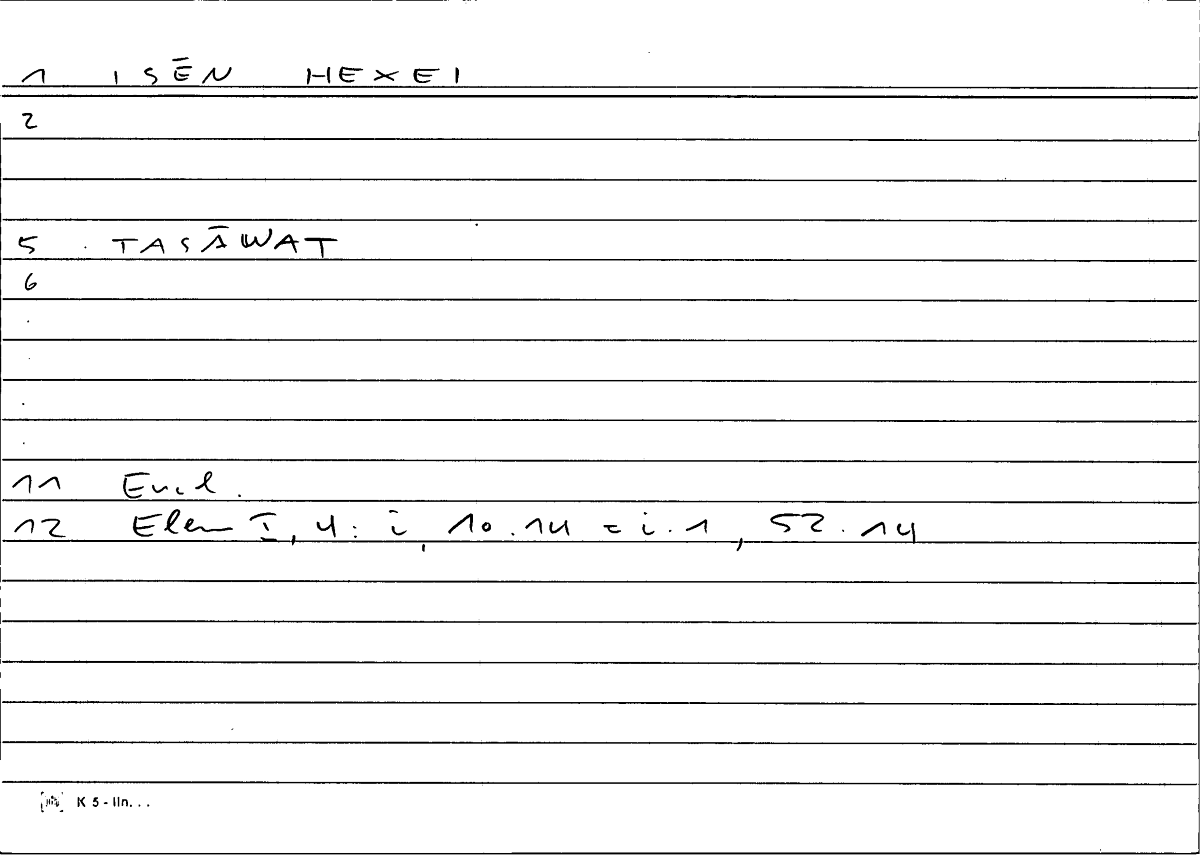 1 ISĒN HEXEI
2
5 TASĀWAT
6
11 Eucl.
12 Elem I, 4: i, 10.14 = i.1, 52.14
K 5 - lin. . .